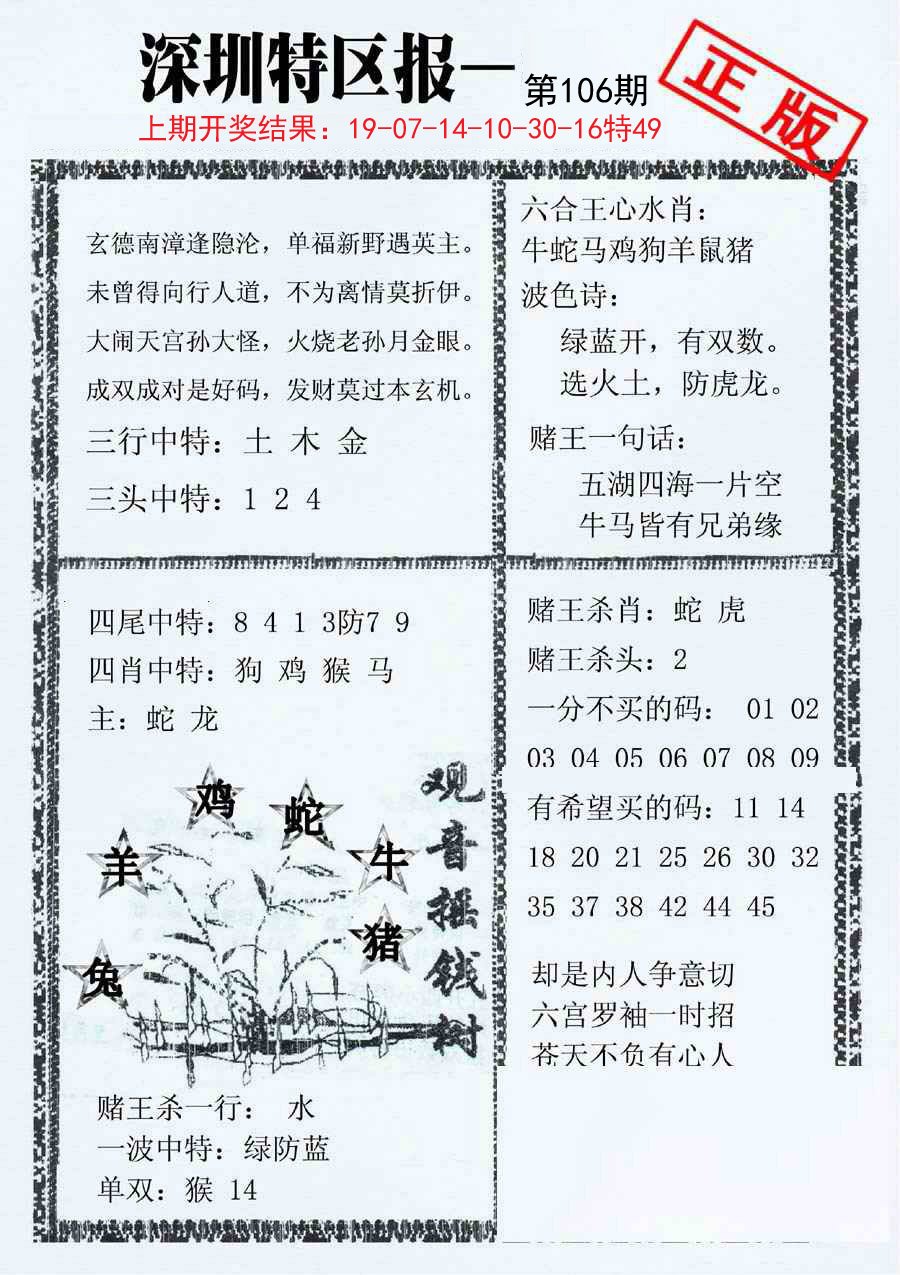 深圳特区报一
第106期
正版
上期开奖结果：19-07-14-10-30-16特49
玄德南漳逢隐沦，单福新野遇英主。
未曾得向行人道，不为离情莫折伊。
大闹天宫孙大怪，火烧老孙月金眼。
成双成对是好码，发财莫过本玄机。
三行中特：土 木 金
三头中特：1 2 4
六合王心水肖：
牛蛇马鸡狗羊鼠猪
波色诗：
绿蓝开，有双数。
选火土，防虎龙。
赌王一句话：
五湖四海一片空
牛马皆有兄弟缘
四尾中特：8 4 1 3防7 9
四肖中特：狗 鸡 猴 马
主：蛇 龙
鸡
蛇
羊
牛
猪
兔
观音摇钱树
赌王杀一行： 水
一波中特：绿防蓝
单双：猴 14
赌王杀肖：蛇 虎
赌王杀头：2
一分不买的码： 01 02
03 04 05 06 07 08 09
有希望买的码：11 14
18 20 21 25 26 30 32
35 37 38 42 44 45
却是内人争意切
六宫罗袖一时招
苍天不负有心人